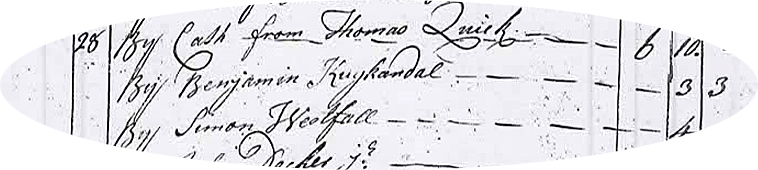 28 By Cash from Thomas Quick 6 10
By Benjamin Kuykandal 3 3
By Simon Westfall 4
Decker Jr